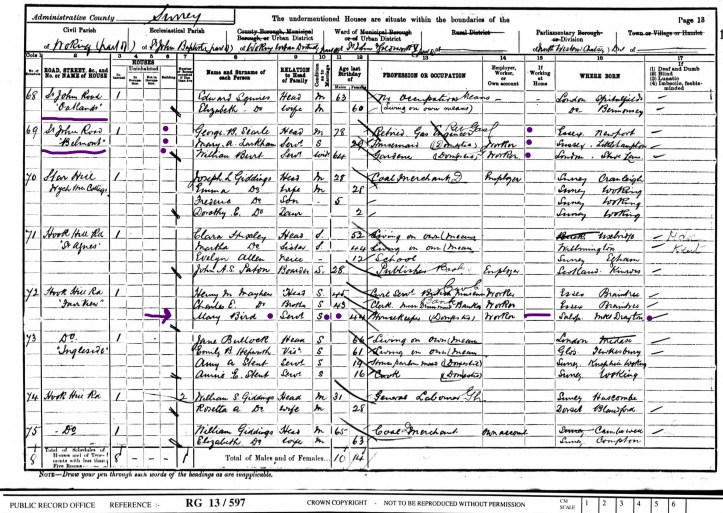 Administrative County Surrey
The undermentioned Houses are situate within the boundaries of the
Page 13
Civil Parish
Ecclesiastical Parish
County Borough, Municipal Borough, or Urban District
Ward of Municipal Borough or Urban District
Rural District
Parliamentary Borough or Division
Town or Village or Hamlet
of Woking (part of)
of St John Baptist (part of)
of Woking Urban District (part of)
of St John
of North Western Div
Cols. 1 2 3 4 5 6 7 8 9 10 11 12 13 14 15 16 17
ROAD, STREET, &c., and No. or NAME of HOUSE
HOUSES
Inhabited
Uninhabited
Name and Surname of each Person
RELATION to Head of Family
Age last Birthday of
Males Females
PROFESSION OR OCCUPATION
Employer, Worker, or Own account
If Working at Home
WHERE BORN
If
(1) Deaf and Dumb
(2) Blind
(3) Lunatic
(4) Imbecile, feeble-minded
68 St John Road 1 Edward Squires Head M 63 No Occupation Means London Spitalfields
"Oatlands" Elizabeth Do Wife M 60 (Living on own means) Do Bermondsey
69 St John Road 1 George B. Searle Head M 78 Retired Gas Engineer Essex Newport
"Belmont" Mary A. Larkham Serv S 29 Housemaid (Domestic) Worker Sussex Littlehampton
William Burt Serv Widr 64 Gardener (Domestic) Worker London Shoe Lane
70 Star Hill 1 Joseph L Giddings Head M 28 Coal Merchant Employer Surrey Cranleigh
Emma Do Wife M 28 Surrey Woking
Do Son 5 Surrey Woking
Dorothy E. Do Daur 2 Surrey Woking
71 Hook Hill Rd 1 Clara Head S 52 Living on own Means Uxbridge
"St Agnes" Martha Do Sister S 44 Living on own Means Wilmington Kent
Evelyn Allen Neice 12 School Surrey Egham
John A.S. Paton Boarder S 28 Publisher Employer Scotland
72 Hook Hill Rd 1 Henry M. Mayhew Head S 44 Civil Serv British Museum Worker Essex Braintree
Charles E. Do Brother S 43 Clerk Bank Worker Essex Braintree
Mary Bird Serv S 44 Housekeeper (Domestic) Worker Salop Mkt Drayton
73 Do. 1 Jane Bullock Head S 66 Living on own Means London
"Ingleside" Emily B Hepworth Vis S 61 Living on own Means Glos Tewkesbury
Amy A Stent Serv S 19 House parlour maid (Domestic) Surrey Knaphill Woking
Annie E. Stent Serv S 16 Cook (Domestic) Surrey Woking
74 Hook Hill Rd 1 2 William S Giddings Head M 31 General Labourer Surrey Hascombe
Rosetta A Do Wife M 28 Dorset Blandford
75 Do 1 William Giddings Head M 65 Coal Merchant Own account Surrey
Elizabeth Do Wife M 63 Surrey Compton
8 Total of Schedules of Houses and of Tenements with less than Five Rooms 8
Total of Males and of Females... 10 14
NOTE—Draw your pen through such words of the headings as are inapplicable.
PUBLIC RECORD OFFICE REFERENCE :- RG 13/597 CROWN COPYRIGHT - NOT TO BE REPRODUCED WITHOUT PERMISSION CM SCALE 1 2 3 4 5 6